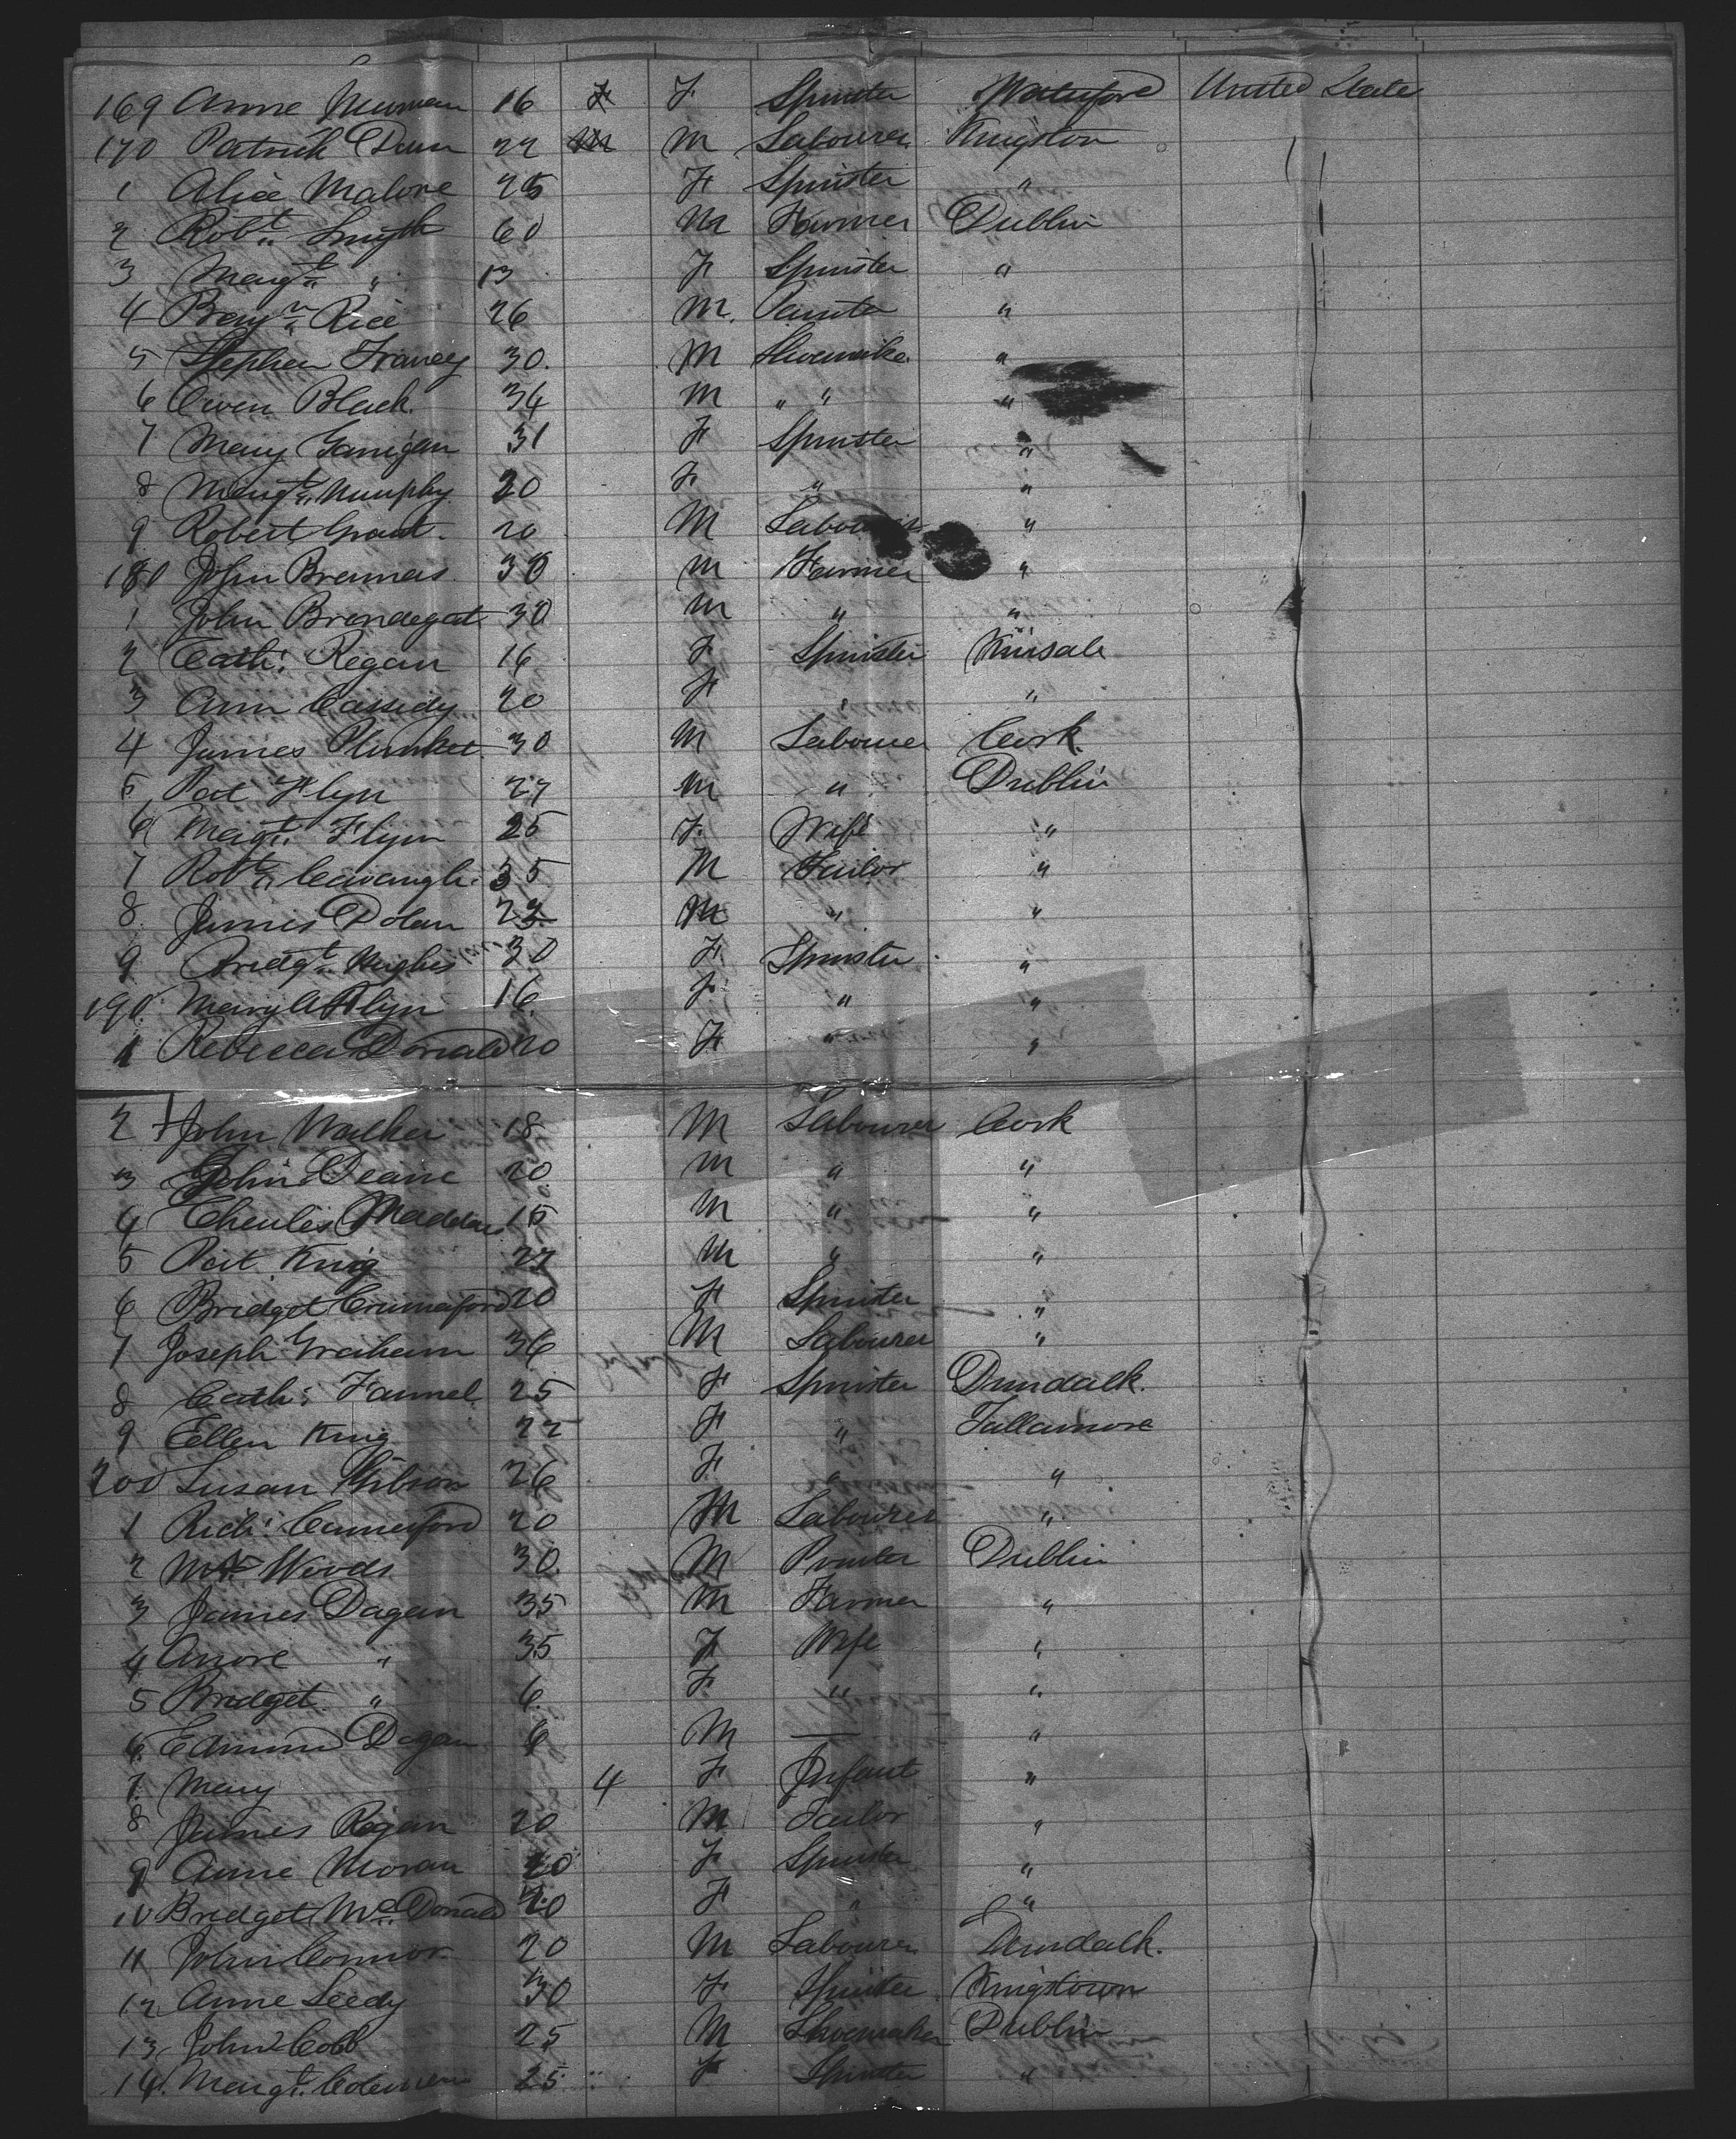 169 Anne Newman 16 F F Spinster Waterford United State
170 Patrick Dunn 22 M M Labourer Kingston
1 Alice Malone 25 F Spinster "
2 Robt. Smyth 60 M Farmer Dublin
3 Margt. " 13 F Spinster "
4 Benjn. Rice 26 M. "
5 Stephen 30. M Shoemaker "
6 Owen Black. 34 M " " "
7 Mary Garrigan 31 F Spinster "
8 Margt. Murphy 20 F " "
9 Robert Grant. 20 M Labourer "
180 John 30 M Farmer "
1 John 30 M " "
2 Cath: Regan 16 F Spinster Kinsale
3 Ann Cassidy 20 F " "
4 James Plunket 30 M Labourer Cork.
5 Pat Flyn 27 M " Dublin
6 Margt. Flynn 25 F. Wife "
7 Robt. Cavangh. 35 M Tailor "
8. James Dolan M " "
9 Bridgt. Hughes 30 F Spinster "
190. Mary A Flyn 16. F " "
1 Rebecca Donald 20 F " "
2 John Walker 18 M Labourer Cork
3 John Deane 20. M " "
4 Charles 15 M " "
5 Pat King 27 M " "
6 Bridget 20 F Spinster "
7 Joseph Graham 36 M Labourer "
8 Cath: Farrnel 25 F Spinster Dundalk.
9 Ellen King 22 F " Tullamore
200 Susan Gibson 26 F. " "
1 Rich: 20 M Labourer "
2 Woods 30. M Dublin
3 James Dagan 35 M Farmer "
4 " 35 F Wife "
5 Bridget " 6. F " "
6. Edmund Dagan 6 M — "
7. Mary 4 F Infant "
8 James Regan 20 M Tailor "
9 Anne Moran 20 F Spinster "
10 Bridget Mc. Donald 20 F " "
11 John Connor 20 M Labourer Dundalk.
12 Anne Leedy 30 F Spinster Kingstown
13. John Cobb 25 M Shoemaker Dublin
14. Margt. Coleman 25 F Spinster "